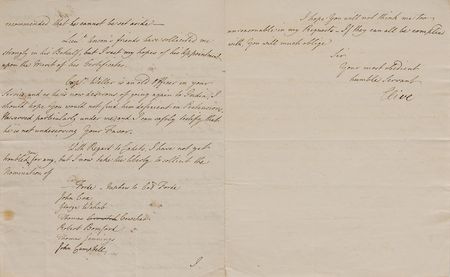 recommended that he cannot be set aside.
Lieu.t friends have sollicited me
strongly in his Behalf, but I rest my hopes of his Appointment
upon the Merit of his Certificates.
Cap.t is an old Officer in your
Service and as he is now desirous of going again to India, I
should hope you would not find him deficient in Pretensions.
He served particularly under me and I can safely testify that
he is not undeserving Your Favor.
With Regard to Cadets, I have not yet
troubled for any, but I now take the liberty to sollicit the
Nomination of
Forde Nephew to Col.o Forde
John Coxe
George
Thomas
Robert
Thomas Jennings
John Campbell
I
I hope You will not think me too
unreasonable in my Requests. If they can all be complied
with You will much oblige
Sir,
Your most obedient
humble Servant
Clive